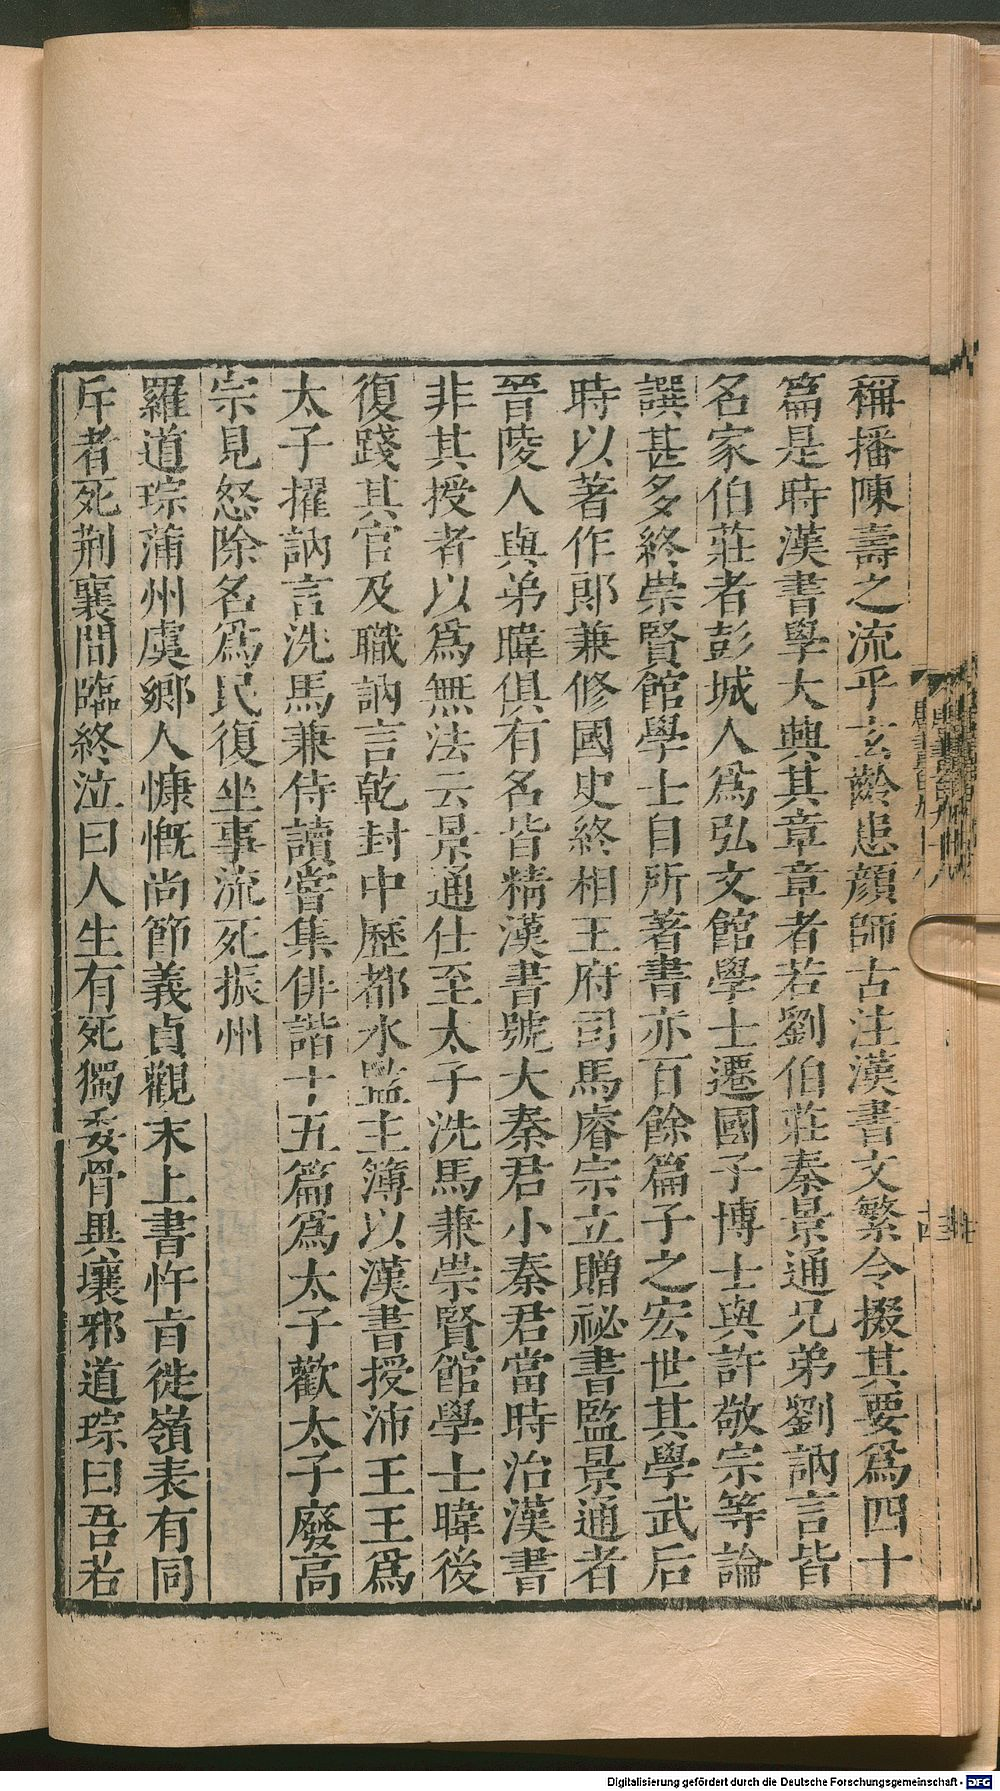 稱播陳壽之流乎玄齡患顔師古注漢書文繁令掇其要爲四十
篇是時漢書學大興其章章者若劉伯莊秦景通兄弟劉訥言皆
名家伯莊者彭城人爲弘文館學士遷國子博士與許敬宗等論
譔甚多終崇賢館學士自所著書亦百餘篇子之宏世其學武后
時以著作郎兼修國史終相王府司馬睿宗立贈祕書監景通者
晉陵人與弟暐俱有名皆精漢書號大秦君小秦君當時治漢書
非其授者以爲無法云景通仕至太子洗馬兼崇賢館學士暐後
復踐其官及職訥言乾封中歷都水監主簿以漢書授沛王王爲
太子擢訥言洗馬兼侍讀嘗集俳諧十五篇爲太子歡太子廢高
宗見怒除名爲民復坐事流死振州
羅道琮蒲州虞鄉人慷慨尚節義貞觀末上書忤旨徙嶺表有同
斥者死荆襄間臨終泣曰人生有死獨委骨異壤邪道琮曰吾若
Digitalisierung gefördert durch die Deutsche Forschungsgemeinschaft - DFG